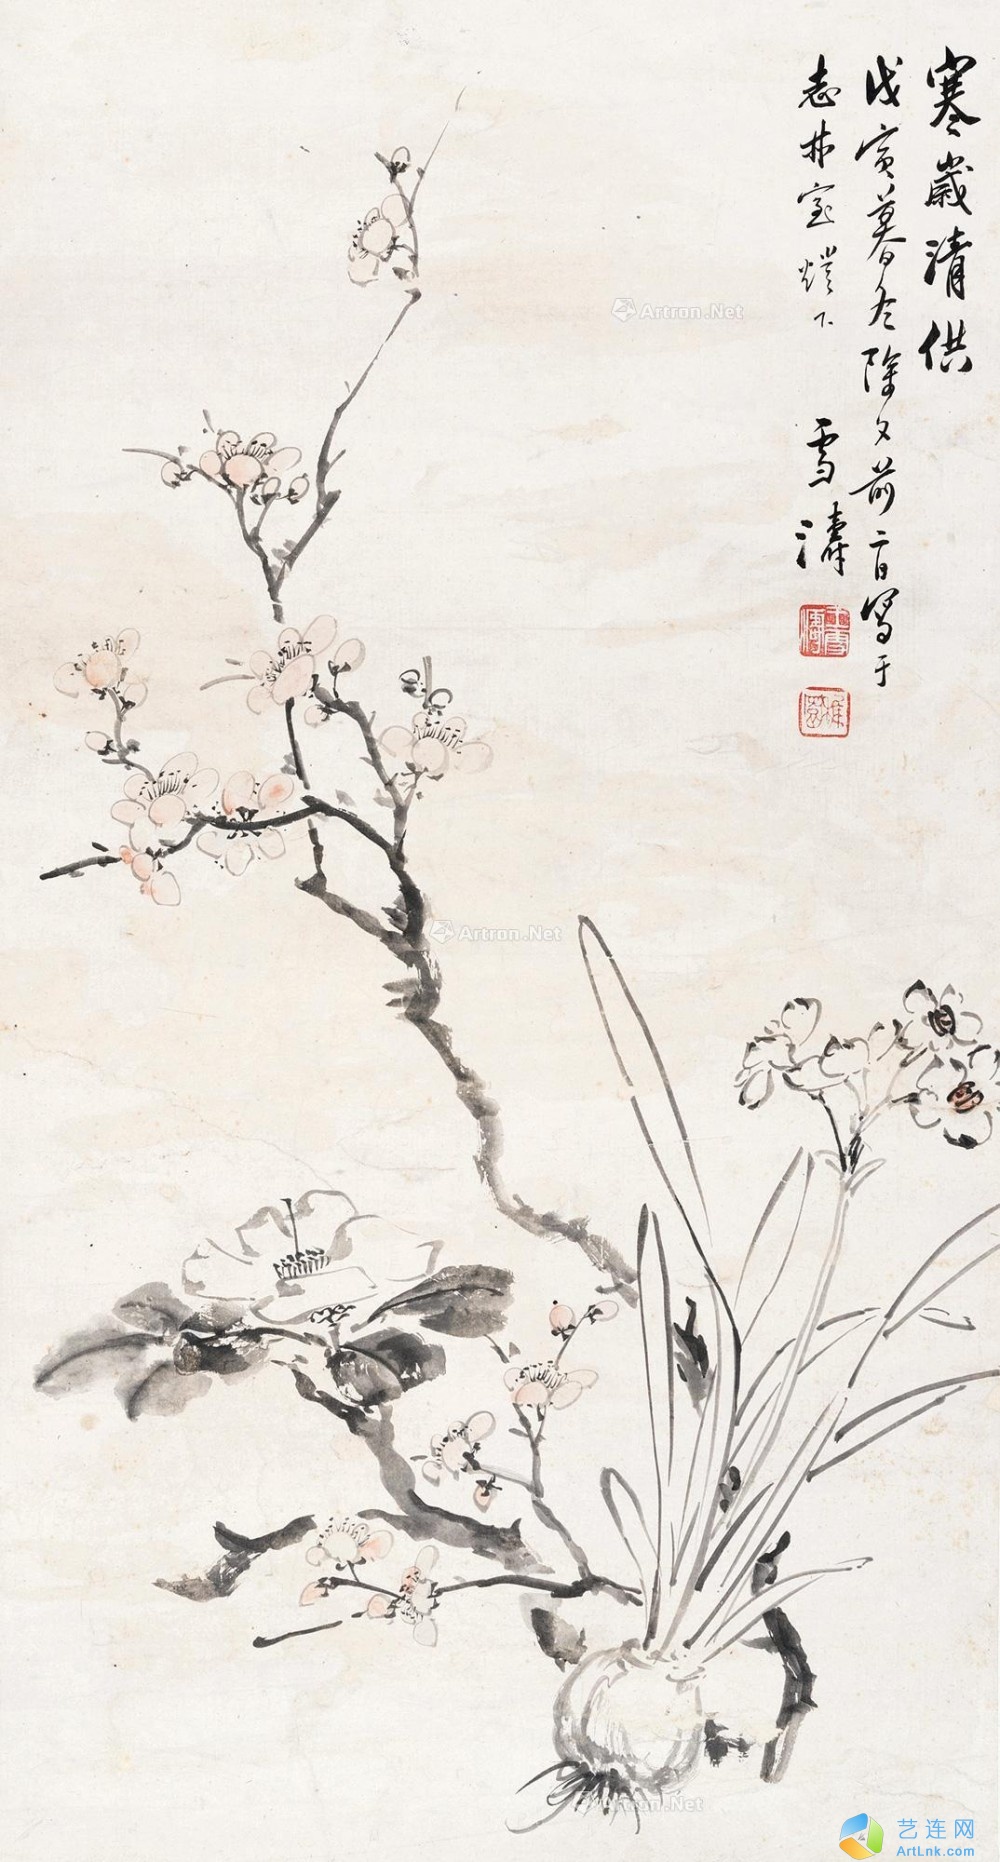 寒歲清供
戊寅暮冬除夕前二日寫于
志林室燈下 雪濤
王雪濤
Artron.Net
Artron.Net
Artron.Net
艺连网
ArtLnk.com